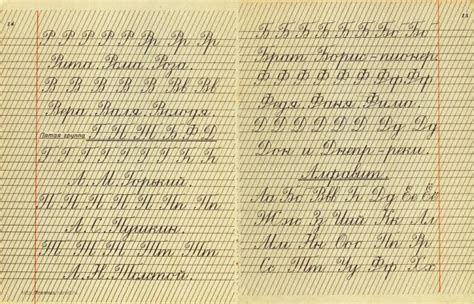 14
Р Р Р Р Р Р Рр Рр Рр
Рита. Рма. Роза.
В В В В В В В Вв Вв
Вера. Валя. Володя.
Пятая группа Г П Т Б Ф Д
Г Г Г Г Г Г Г Г Гг Гг
А. М. Горький.
П П П П П П Пп Пп
А. С. Пушкин.
Т Т Т Т Тт Тт
Л. Н. Толстой.
15
Б Б Б Б Б Б Бб Бб
Брат Борис - пионер.
Ф Ф Ф Ф Ф Ф Фф Фф
Федя. Фаня. Фима.
Д Д Д Д Д Д Дд Дд
Дон и Днепр - реки.
Алфавит.
Аа Бб Вв Гг Дд Ее Ёё
Жж Зз Ии Йй Кк Лл
Мм Нн Оо Пп Рр
Сс Тт Уу Фф Хх